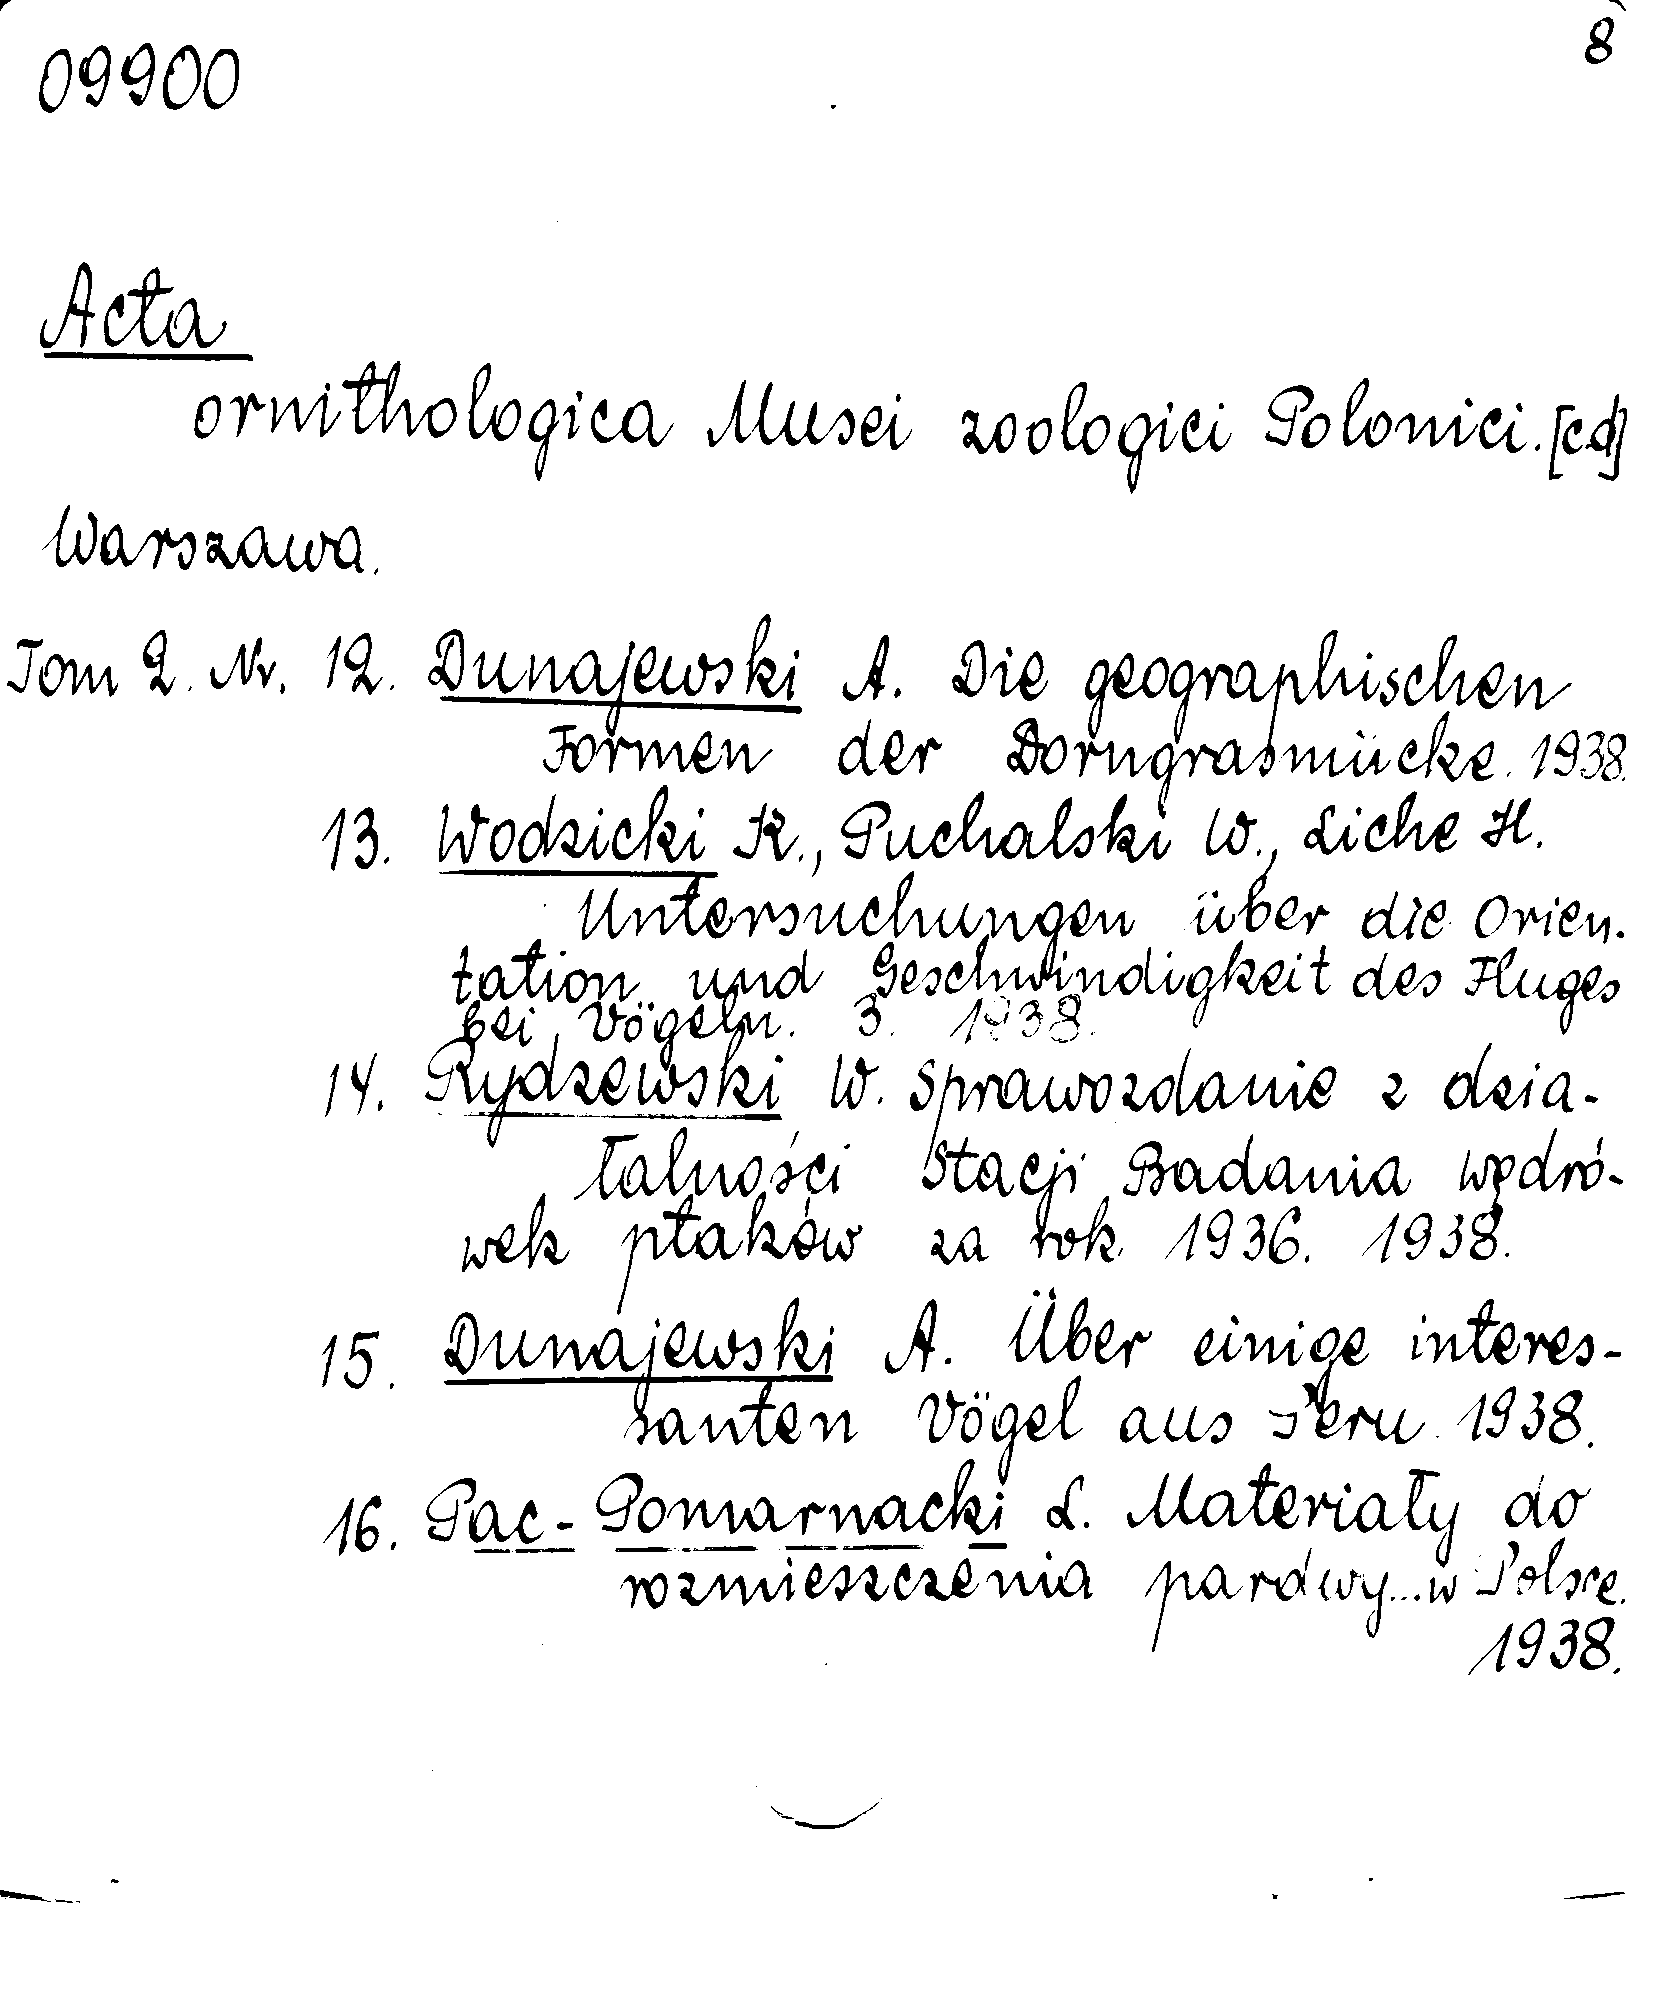 09900
8
Acta
ornithologica Musei zoologici Polonici. [cd]
Warszawa.
Tom 2. Nr. 12. Dunajewski A. Die geographischen
Formen der Dorngrasmücke. 1938.
13. Wodzicki K., Puchalski W., Liche H.
Untersuchungen über die Orien-
tation und Geschwindigkeit des Fluges
bei Vögeln. 3. 1938.
14. Rydzewski W. Sprawozdanie z dzia-
łalności Stacji Badania wędró-
wek ptaków za rok 1936. 1938.
15. Dunajewski A. Über einige interes-
santen Vögel aus Peru. 1938.
16. Pac-Pomarnacki L. Materiały do
rozmieszczenia pardwy...w Polsce.
1938.